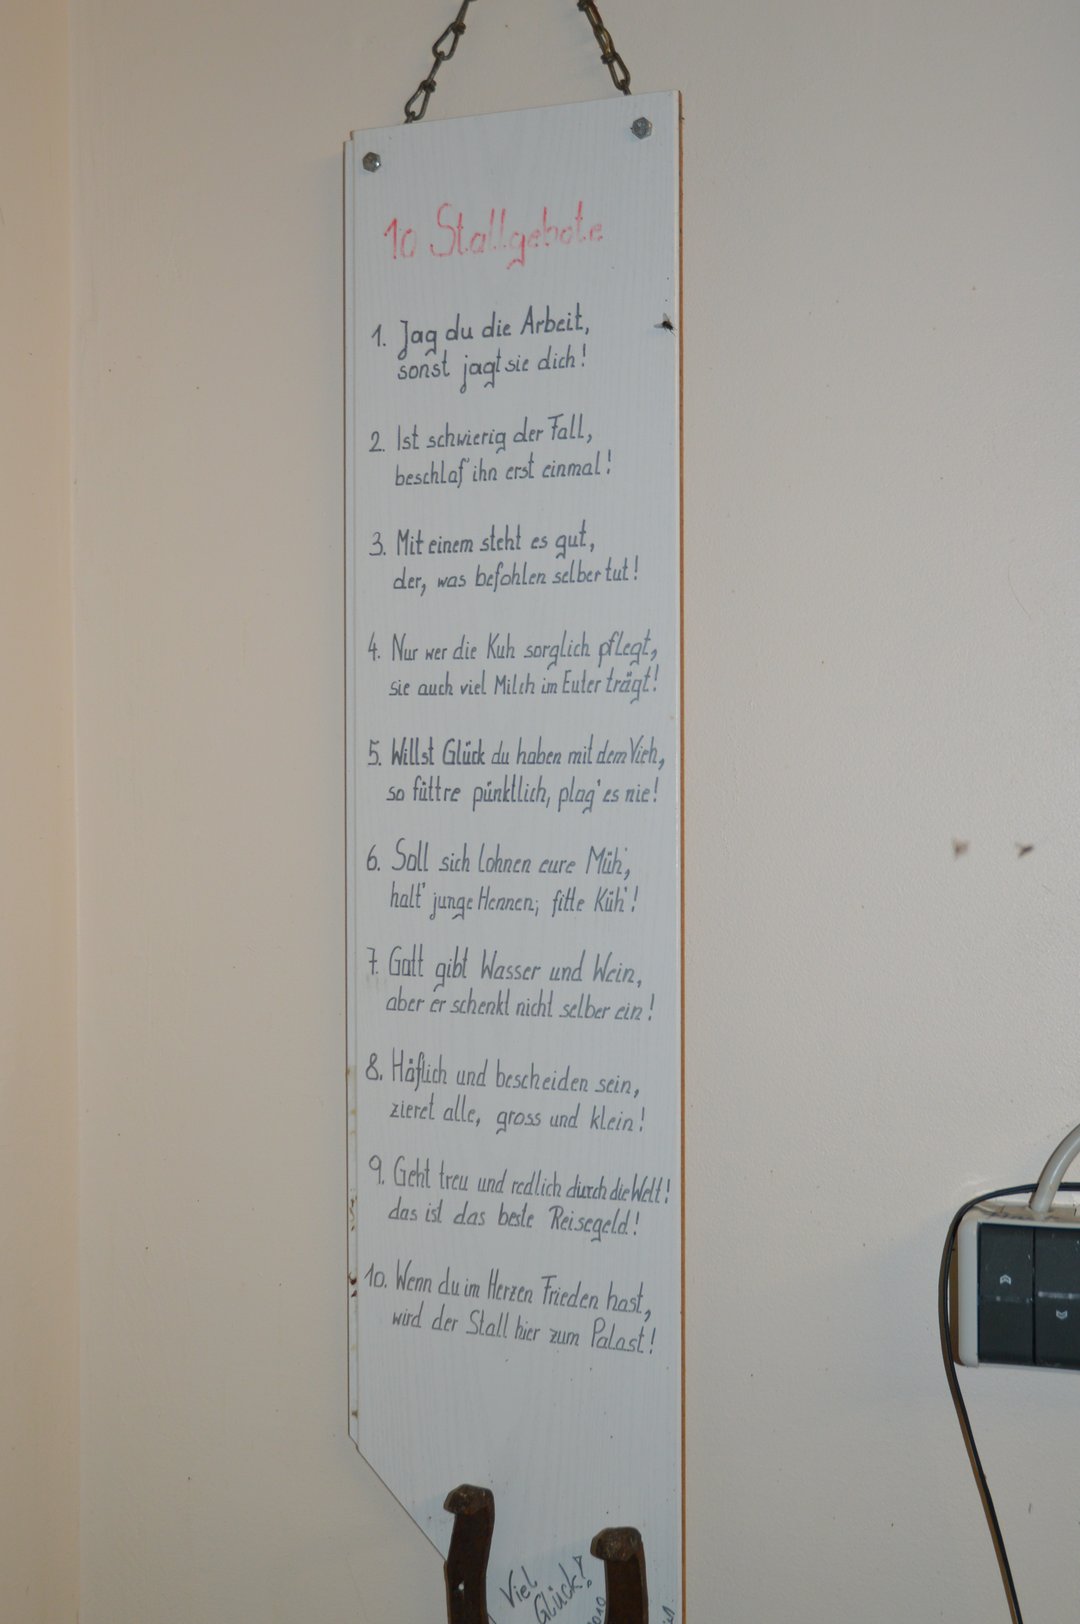 10 Stallgebote
1. Jag du die Arbeit,
sonst jagt sie dich!
2. Ist schwierig der Fall,
beschlaf' ihn erst einmal!
3. Mit einem steht es gut,
der, was befohlen selber tut!
4. Nur wer die Kuh sorglich pflegt,
sie auch viel Milch im Euter trägt!
5. Willst Glück du haben mit dem Vieh,
so füttre pünktlich, plag' es nie!
6. Soll sich lohnen eure Müh',
halt' junge Hennen; fitte Küh'!
7. Gott gibt Wasser und Wein,
aber er schenkt nicht selber ein!
8. Höflich und bescheiden sein,
zieret alle, gross und klein!
9. Geht treu und redlich durch die Welt!
das ist das beste Reisegeld!
10. Wenn du im Herzen Frieden hast,
wird der Stall hier zum Palast!
Viel
Glück!